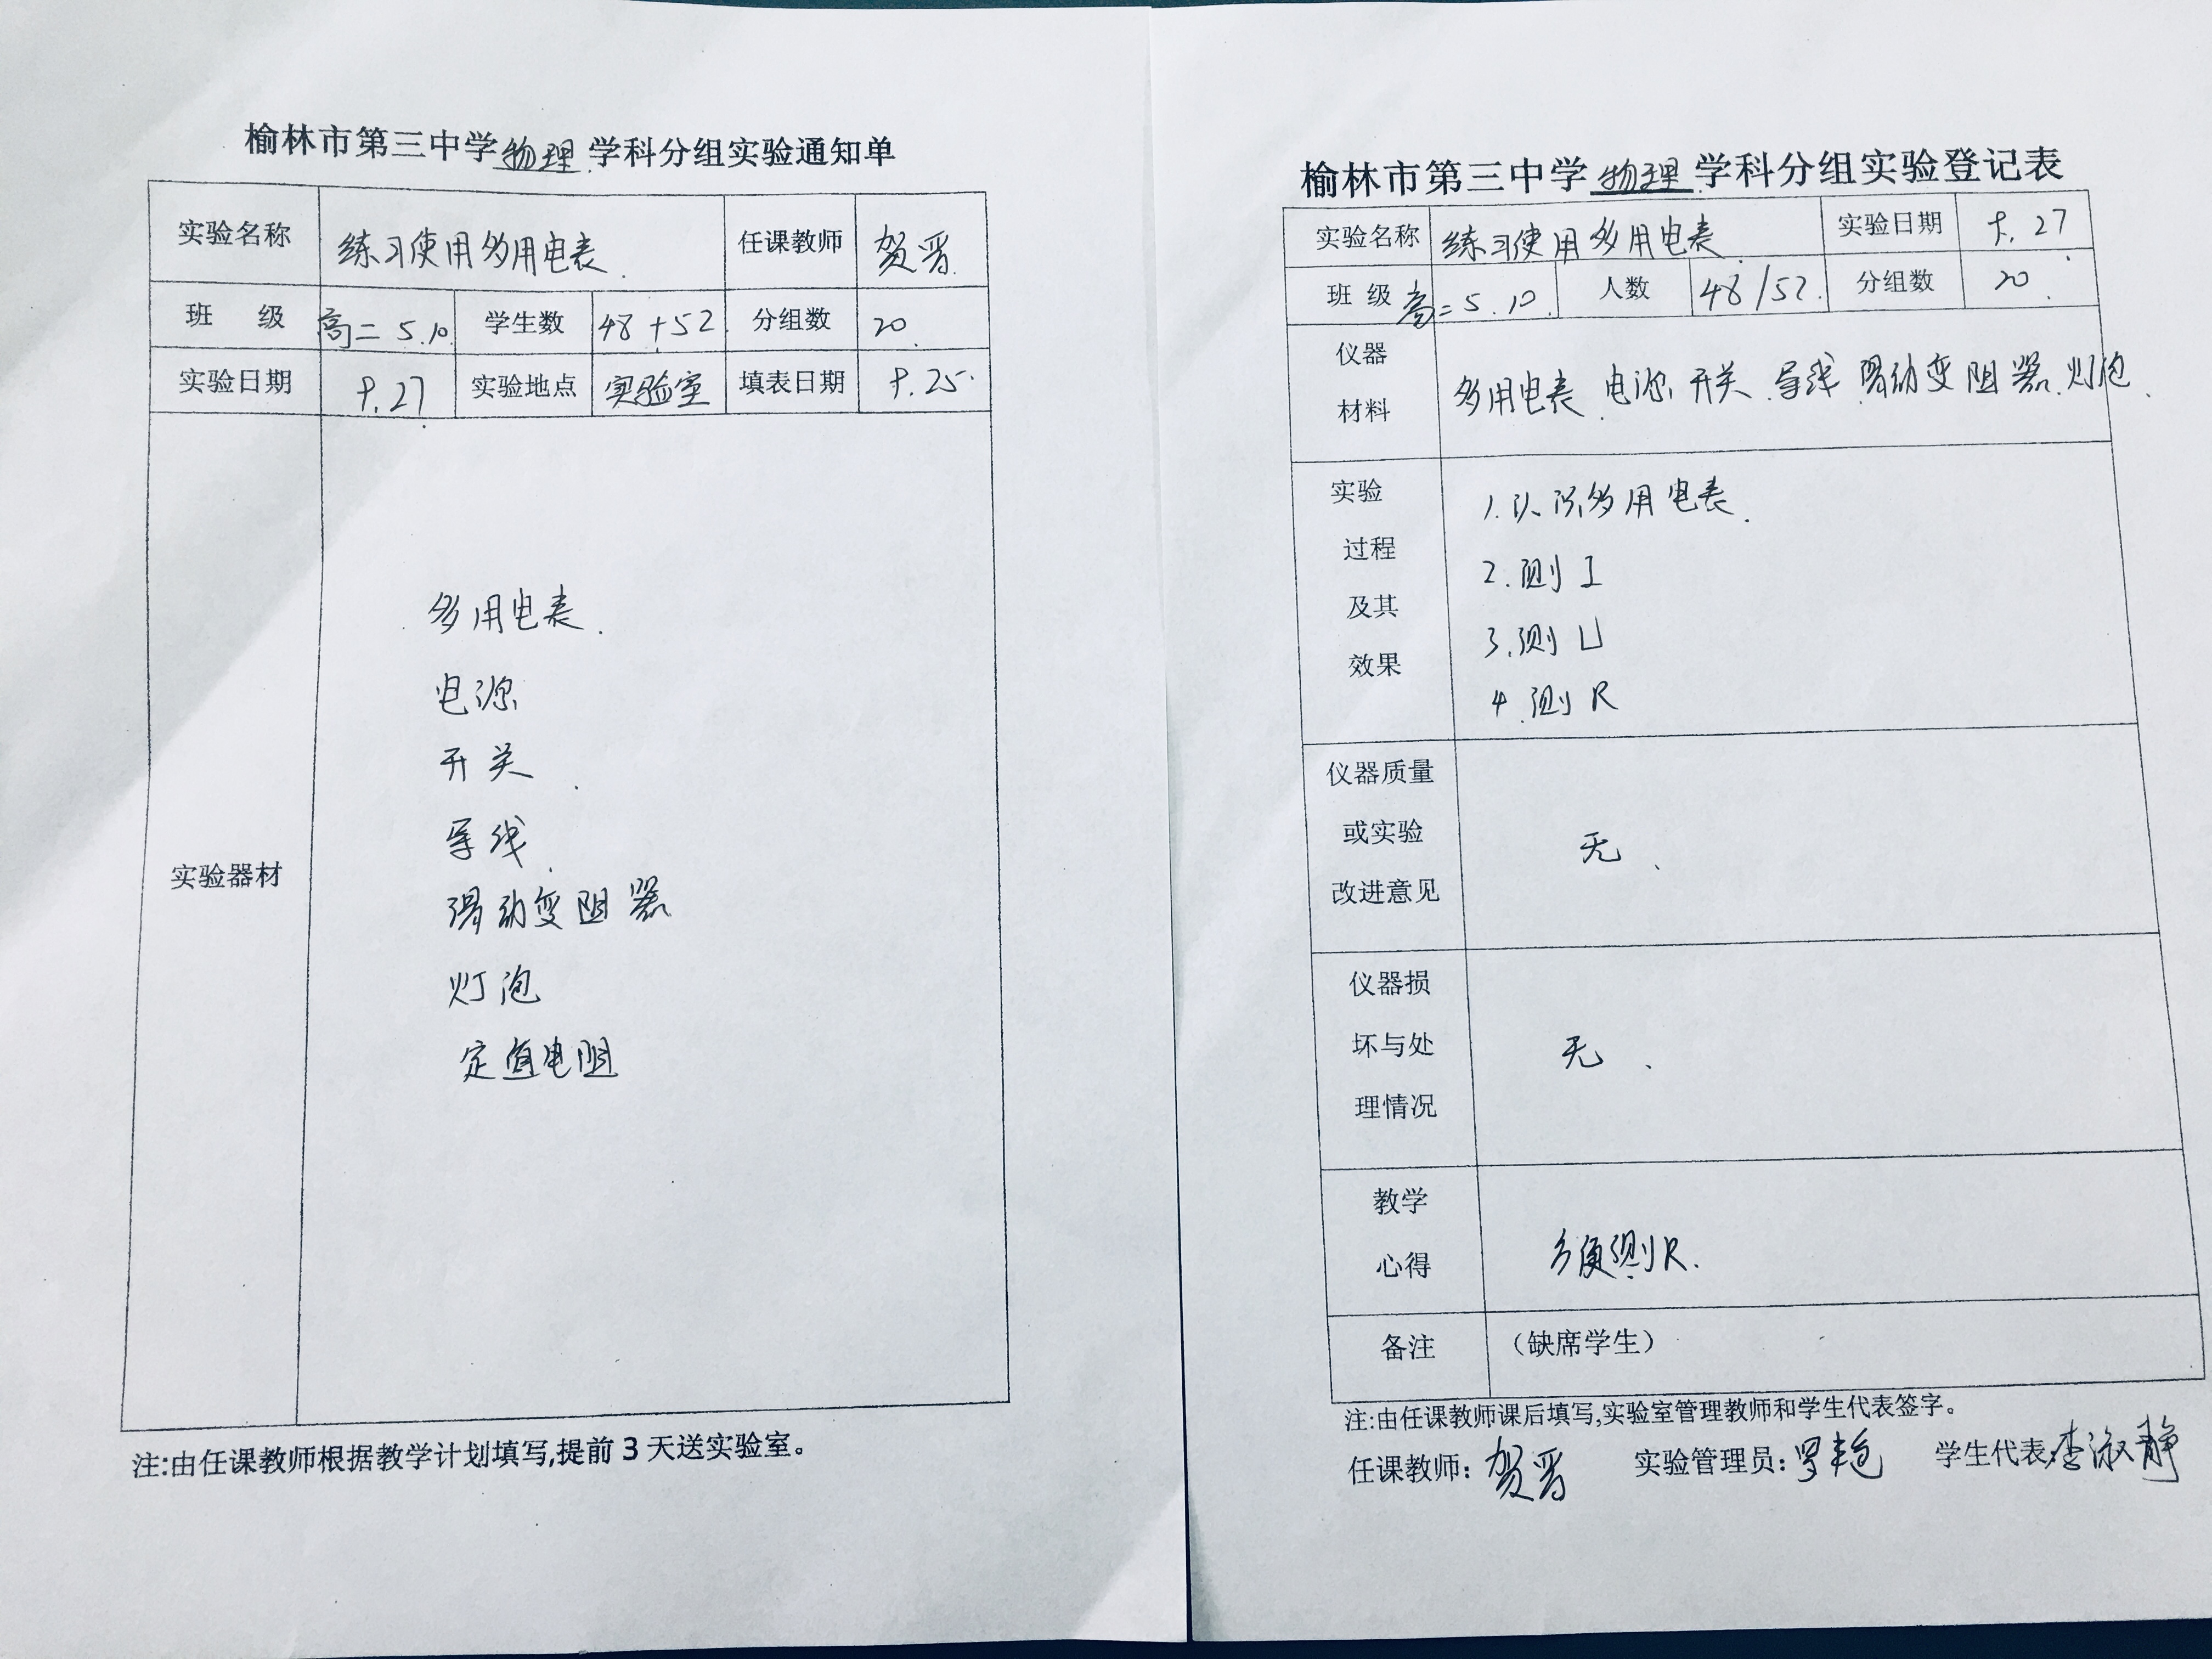 榆林市第三中学物理学科分组实验通知单
实验名称 练习使用多用电表. 任课教师 贺晋
班 级 高二 5.10. 学生数 48+52 分组数 20.
实验日期 9.27 实验地点 实验室 填表日期 9.25.
实验器材
多用电表.
电源
开关
导线
滑动变阻器
灯泡
定值电阻
注:由任课教师根据教学计划填写,提前3天送实验室。
榆林市第三中学物理学科分组实验登记表
实验名称 练习使用多用电表. 实验日期 9.27
班 级 高二 5.10. 人数 48/52. 分组数 20.
仪器
材料
多用电表、电源、开关、导线、滑动变阻器、灯泡、
实验
过程
及其
效果
1.认识多用电表.
2.测I
3.测U
4.测R
仪器质量
或实验
改进意见
无、
仪器损
坏与处
理情况
无、
教学
心得
多使测R.
备注 (缺席学生)
注:由任课教师课后填写,实验室管理教师和学生代表签字。
任课教师:贺晋 实验管理员: 学生代表 李淑静